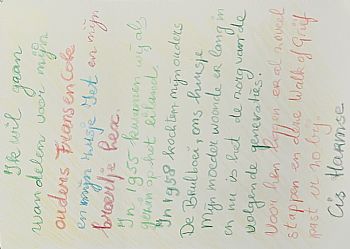 Ik wil gaan
wandelen voor mijn
ouders Frans en Coke
en mijn zusje Jet en mijn
broertje hex.
In 1955 kwamen wij als
gezin op het eiland.
In 1958 kochten mijn ouders
De Bruthoei, ons huisje
Mijn moeder woonde er lang in
en nu is het de zorg van de
volgende generaties.
Voor hen lopen en al zoveel
stappen en deze Walk of Grief
past er zo bij.
Cis Harmse